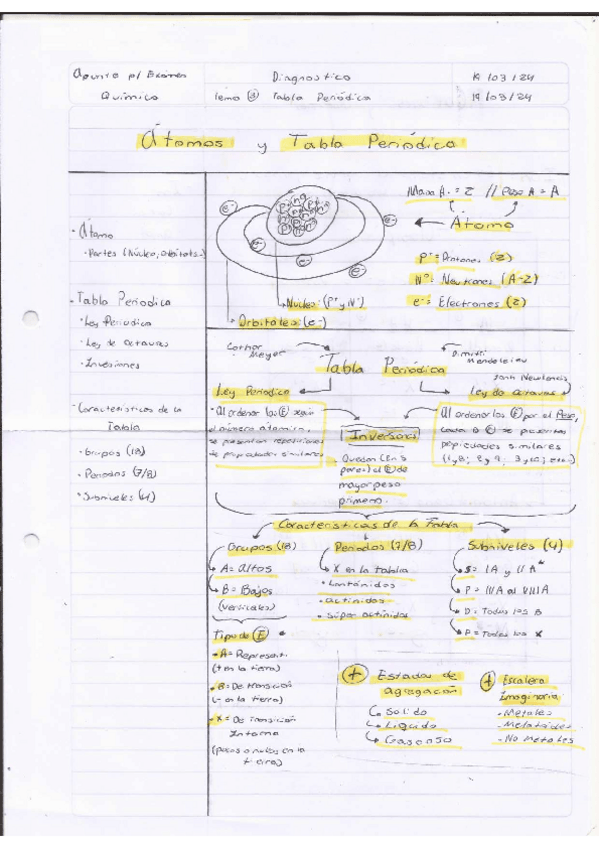 Apunte p/ Examen
Diagnostico
19/03/24
Químico
Tema ③ Tabla Periódica
19/03/24
Átomos y Tabla Periódica
Masa A. = Z // Peso A = A
Átomo
P⁺ = Protones (Z)
N° = Neutrones (A-Z)
e⁻ = Electrones (Z)
e⁻
e⁻
e⁻
e⁻
e⁻
Nucleo: (P⁺ y N°)
Orbitales: (e⁻)
• Átomo
• Partes (Núcleo, orbitals-)
• Tabla Periodica
• Ley Periodica
• Ley de octavas
• Inversiones
• Caracteristicas de la
Tabla
• Grupos (18)
• Periodos (7/8)
• Subniveles (4)
Lothar
Meyer
Tabla Periódica
Dimitri
Mendeleiev
John Newlands
Ley Periodica
Ley de octavas
• Al ordenar los Ⓔ según
el número atomico,
se presentan repeticiones
de propiedades similares
Inversos
• Quedan (En 3
pares) el Ⓔ de
mayor peso
primero.
Al ordenar los Ⓔ por el Peso,
cada 8 Ⓔ se presentan
propiedades similares
(1 y 8; 2 y 9; 3 y 10; etc...)
Caracteristicas de la Tabla
Grupos (18)
A = Altos
B = Bajos
(verticales)
Tipo de Ⓔ
• A = Represent.
(+ en la tierra)
• B = De transición
(- en la tierra)
• X = De transición
Interna
(pocos o nulos en la
tierra)
Periodos (7/8)
X en la tabla
• Lantánidos
• actinidos
• Súper actínidos
Subniveles (4)
S = IA y IIA
P = IIIA al VIIIA
D = Todas las B
F = Todos los X
+ Estados de
agregación
Solido
Liquido
Gaseoso
+ Escalera
Imaginaria
- Metales
- Metaloides
- No metales